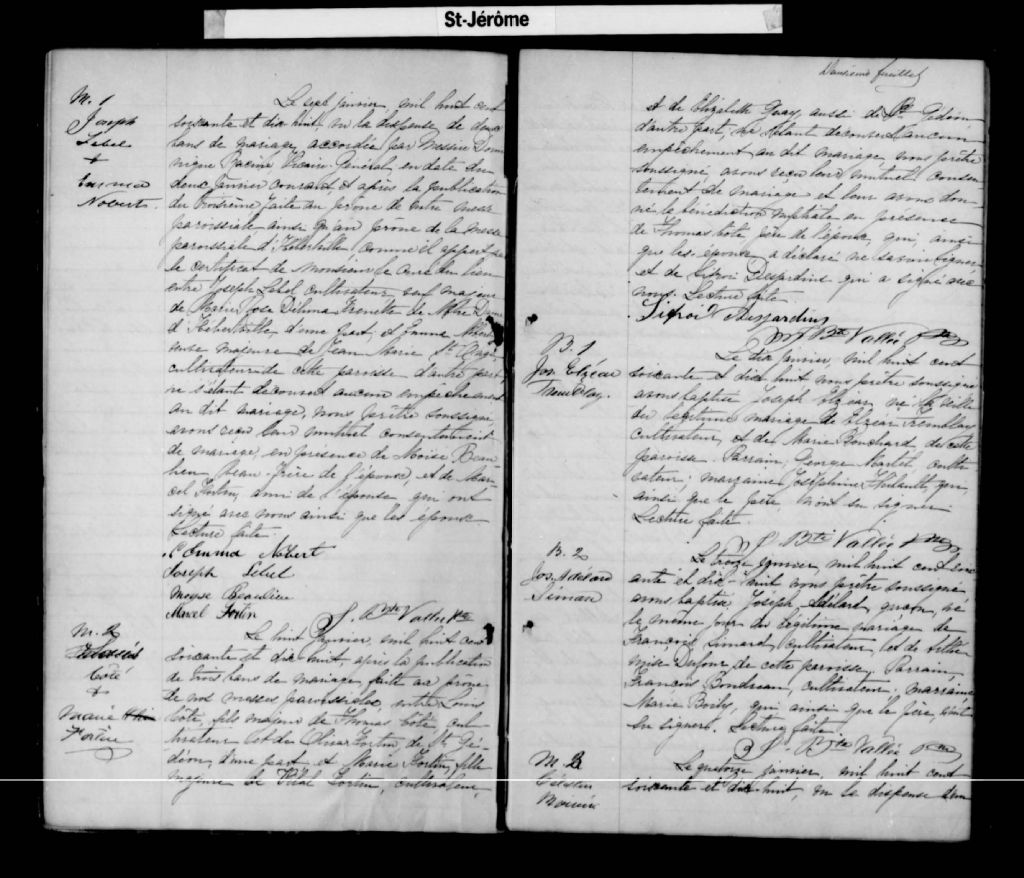 St-Jérôme
M. 1
Joseph
Lebel
+
Emma
Nobert.
Le sept janvier, mil huit cent
soixante et dix huit, vu la dispense de deux
bans de mariage, accordée par Messire Domi
nique Racine Vicaire Général en date du
deux janvier courant et après la publication
du troisième faite au prône de notre messe
paroissiale ainsi qu'au prône de la messe
paroissiale d'Hébertville comme il appert par
le certificat de Monsieur le Curé du lieu
entre Joseph Lebel cultivateur veuf majeur
de Marie Rose Délima Frenette de Notre Dame
d'Hébertville, d'une part, et Emma
majeure de Jean Marie
cultivateur de cette paroisse d'autre part,
ne s'étant découvert aucun empêchement
au dit mariage, nous prêtre soussigné
avons reçu leur mutuel consentement
de mariage, en présence de Moïse Beau-
lieu beau-frère de l'époux, et de Mar
cel Fortin, ami de l'épouse qui ont
signé avec nous ainsi que les époux
Lecture faite.
Emma
Joseph Lebel
Moyse Beaulieu
Marcel Fortin
J. Bte Vallée Ptre
M. 2
Côté
+
Marie
Fortin
Le huit janvier, mil huit cent
soixante et dix huit, après la publication
de trois bans de mariage, faite au prône
de nos messes paroissiales, entre Louis
Côté, fils majeur de Thomas Côté, cul
tivateur et de Fortin, de St. Gé-
déon, d'une part, et Marie Fortin, fille
majeure de Vital Fortin, cultivateur,
Deuxième feuillet
et de Elizabeth Guay aussi de St. Gédéon
d'autre part, ne s'étant découvert aucun
empêchement au dit mariage, nous prêtre
soussigné, avons reçu leur mutuel consen-
tement de mariage et leur avons don-
né la bénédiction nuptiale en présence
de Thomas Côté père de l'époux, qui, ainsi
que les époux a déclaré ne savoir signer
et de Desjardins qui a signé avec
nous. Lecture faite.
Desjardins
J. Bte Vallée Ptre
B. 1
Jos. Elzéar
Tremblay.
Le dix janvier, mil huit cent
soixante et dix huit nous prêtre soussigné
avons baptisé Joseph Elzéar, né la veille
du légitime mariage de Elzéar Tremblay
cultivateur, et de Marie Bouchard de cette
paroisse. Parrain, George Martel, culti
vateur; marraine Joséphine qui,
ainsi que le père, n'ont su signer.
Lecture faite.
J. Bte Vallée Ptre
B. 2
Jos. Adélard
Simard
Le treize janvier, mil huit cent soix
ante et dix-huit nous prêtre soussigné
avons baptisé Joseph Adélard, garçon, né
le même jour du légitime mariage de
François Simard, cultivateur, et de
Dufour de cette paroisse, Parrain,
François Boudreau, cultivateur; marraine
Marie Boily, qui ainsi que le père, n'ont
su signer. Lecture faite.
J. Bte Vallée Ptre
M. 3
Le quatorze janvier, mil huit cent
soixante et dix huit, vu la dispense d'un